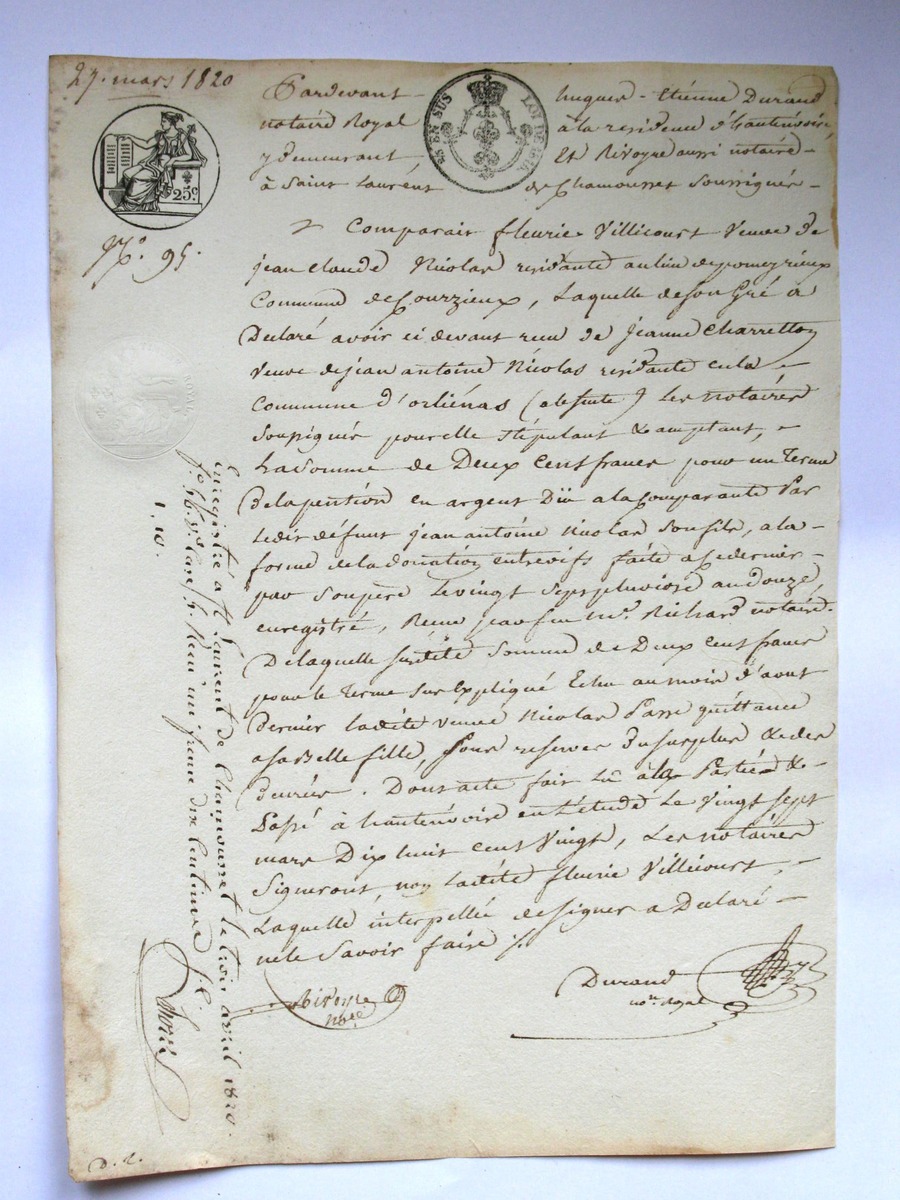 27. mars 1820
Pardevant hugues-Etienne Durand
notaire Royal à la residence d'hauterivoire,
y demeurant, Et Rivoyre aussi notaire
à Saint Laurent de Chamousset Soussignés
25 EN SUS LOI DE 1816
25c
No. 95.
Comparait fleurie Villicourt Veuve de
jean Claude Nicolas residante au lieu de pomeyrieux
Commune de Courzieux, Laquelle de son Gré a
Declaré avoir ci devant recu de jeanne Charretton
Veuve de jean antoine Nicolas residante en la
Commune d'orliénas (absente) Les notaires
Soussignés pour elle stipulant & acceptant,
La Somme de Deux Cent francs pour un Terme
de la pention en argent Düe a la Comparante Par
Ledit défunt jean antoine Nicolas Son fils, a la
forme de la donation entrevifs faite a Ce dernier
par Son pere Le vingt Sept pluviose an douze,
enregistré, Reçue par feu Me. Richard notaire.
De laquelle Susdite Somme de Deux Cent francs
pour le Terme Sus Expliqué Echu au mois d'aout
Dernier Ladite veuve Nicolas Passe quittance
a Sa Belle fille, Sous reserve du Surplus & des
denrées. Dont acte fait Lu à la Partie &
Passé à hauterivoire en L'étude Le Vingt Sept
mars Dix huit Cent Vingt, Les notaires
Signeront, non Ladite fleurie Villicourt,
Laquelle interpellée de Signer a Declaré
ne le Savoir faire
Rivoyre
nore
Durand
nore royal
Enregistré a St Laurent de Chamousset le trois avril 1820.
Reçu un franc dix Centimes
1, 10.
D. 2.